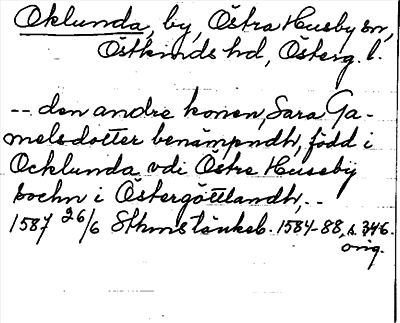 Oklunda, by, Östra Husby sn,
Östkinds hd, Österg. l.
-- den andre konen, Sara Ga-
melsdotter benämpndh, född i
Ocklunda vdi Östre Huseby
sochn i Östergöttlandh, --
1587 26/6 Sthms tänkeb. 1584-88, s. 346.
orig.